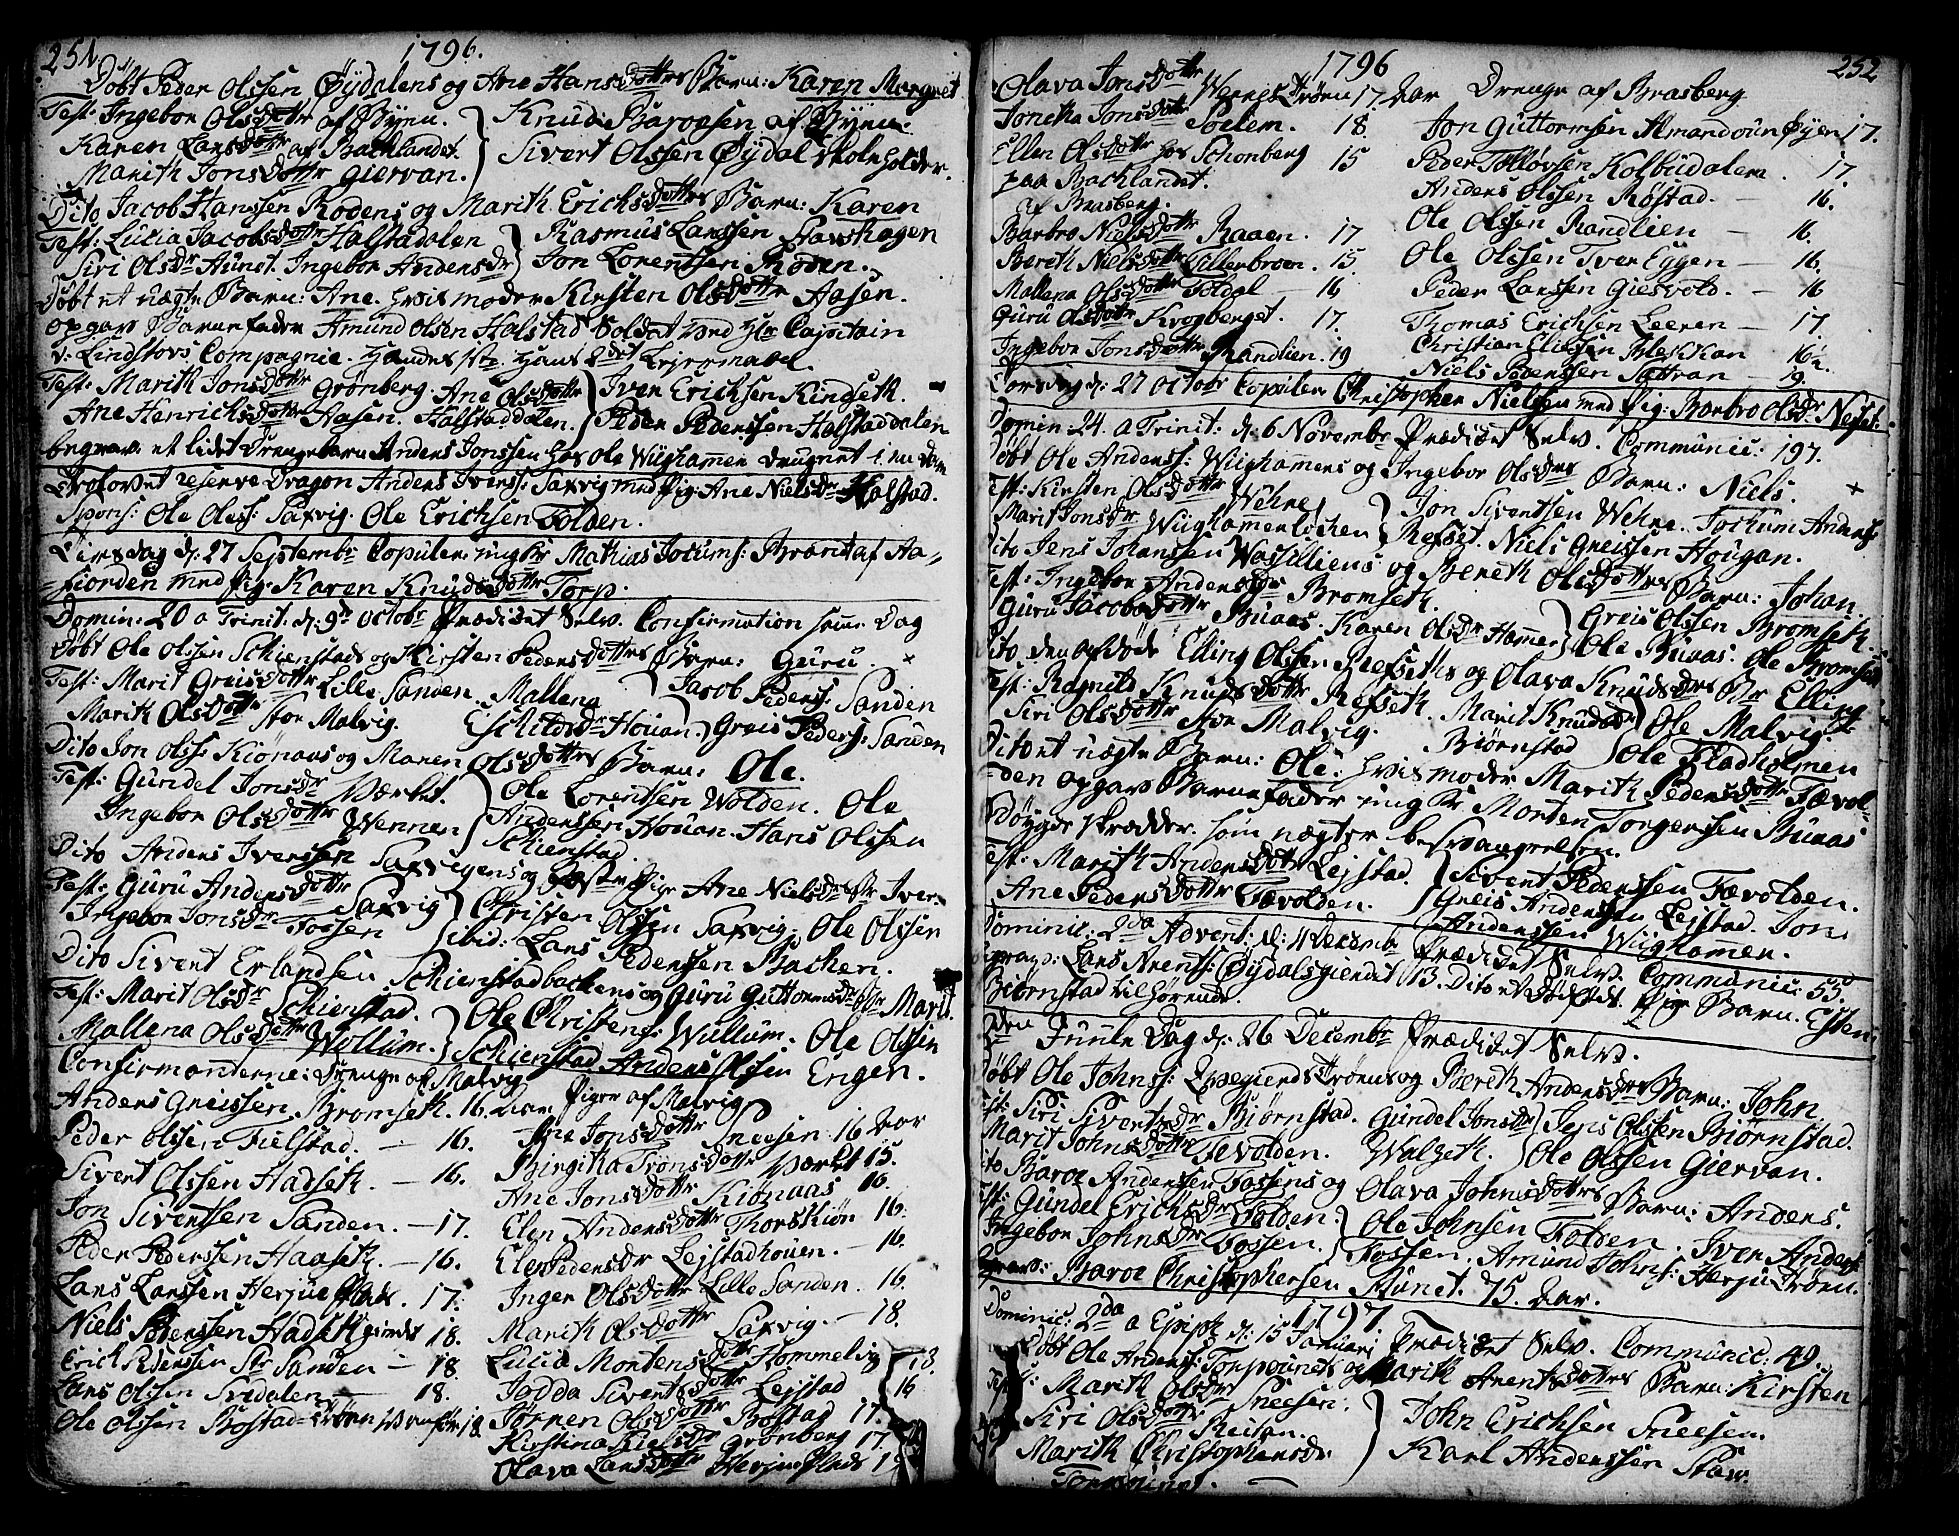 251.
1796.
Døbt Peder Olssen Øydalens og Ane Hansdottrs Barn: Karen Margret
Test: Ingebor Olsdottr af Byen. Knud Baroesen af Byen.
Karen Larsdottr af Backlandet. Sivert Olssen Øydal skoleholder.
Marith Jonsdottr Giervan.
Dito Jacob Hanssen Rodens og Marith Erichsdottrs Barn: Karen
Test: Lucia Jacobsdottr Halstadalen Rasmus Larssen Havshagen
Siri Olsdr Aunet. Ingebor Andersdr Jon Lorentsen Roden.
Døbt et uægte Barn: Ane. hvis moder Kirsten Olsdottr Aasen.
opgav Barnefader Amund Olsen Halstad Soldat ved Hr Capitain
v: Lindstovs Compagnie. Hendes 1te Hans 2det Leiermaal.
Test: Marith Jonsdottr Grønberg. Ane Olsdottr Iver Erichsen Kindseth.
Ane Henrichsdottr Aasen. Halstaddalen. Peder Pederssen Halstaddalen
begravet et lidet Drengebarn Anders Jonssen hos Ole Wiighamer druknet i en Dam
Trolovet reserve Dragon Anders Iverss: Saxvig med Pig: Ane Nielsdr Halstad.
Spons: Ole Olss: Saxvig. Ole Erichsen Folden.
Tirsdag d: 27 Septembr Copuleret ungKr Mathias Jocums: Brandt af Aa-
fiorden med Pig: Karen Knudsdottr Torp.
Domin: 20 a Trinit. d: 9d Octobr Prædiket Selv. Confirmation samme Dag
Døbt Ole Olssen Schienstads og Kirsten Pedersdottrs Barn: Guru.
Test: Marit Greisdottr Lille Sanden Mallena Jacob Peders: Sanden
Marith Olsdottr Stor Malvig. Eschildsdr Houan. Greis Peders: Sanden
Dito Jon Olss: Kiønaas og Maren Olsdottrs Barn: Ole.
Test: Gundel Jonsdr Værket. Ole Lorentsen Wolden. Ole
Ingebor Olsdottr Wennen Anderssen Houan. Hans Olssen
Schienstad.
Dito Anders Iverssen Saxvigens og Fæste Pige Ane Nielsdrs Br Iver.
Test: Guru Andersdottr Saxvig Christen Olssen Saxvig. Ole Olssen
Ingebor Jonsdr Fossen ibid: Lars Pederssen Bachen.
Dito Sivert Erlandsen Schienstadbackens og Guru Guttormsdrs Br Marit.
Test: Marit Olsdr Schienstad. Ole Christens: Wullum. Ole Olssen
Mallena Olsdottr Wollum. Schienstad. Anders Olssen Engen.
Confirmanderne: Drenge af Malvig Piger af Malvig
Anders Greissen Bromseth. 16 Aar Ane Jonsdottr Sneesen 16 Aar
Peder Olssen Fielstad. — 16. Birgitha Trønsdottr Værket 15.
Sivert Olssen Hadseth. — 16. Ane Jonsdottr Kiønaas 16.
Jon Sivertsen Sanden. — 17. Elen Andersdottr Thorskiøn 16.
Peder Pederssen Haaseth. — 16. Elen Pedersdr Lejstadhouen. — 16.
Lars Larssen Herjue Plads. 17. Inger Olsdottr Lille Sanden. 16.
Niels Pederssen Hadsethgierdet 18. Marith Olsdottr Saxvig. — 18.
Erich Pederssen Str Sanden — 18. Lucia Mortensdottr Hommelvig 18.
Lars Olssen Svedalen. — 18. Jodda Sivertsdottr Lejstad 16
Ole Olssen Bostad-Trøen 18 Jørnen Olsdottr Bostad 17.
Kirstina Grønberg 17.
Olava Larsdottr Herjue Plads
252
1796
Olava Jonsdottr WernesTrøen 17 Aar Drenge af Brasberg
Jonetta Jonsdottr Soelem. 18. Jon Guttormsen Almandoun Øyen 17.
Ellen Olsdottr hos Schonberg 15 Peder Kolbudalen. 17.
paa Backlandet. Anders Olssen Røstad. — 16.
af Brasberg. Ole Olssen Randlien — 16.
Barbro Nielsdottr Raaen. 17 Ole Olssen Tver Eggen — 16.
Bereth Nielsdottr Lillenbroen. 15. Peder Larssen Giesvold. — 16
Mallena Olsdottr Foldal — 16 Thomas Erichsen Leeren — 17.
Guru Olsdottr Krogberget. 17. Christian Eliesen FlekKan 16½.
Ingebor Jonsdottr Randlien. 19 Niels Pederssen Sættran — 19.
Torsdag d: 27 Octobr Copuleret Christopher Nielsen med Pig: Barbro Olsdr
Domin 24. a Trinit: d: 6 Novembr Prædiket Selv. Communic: 197.
Døbt Ole Anderss: Wiighamers og Ingebor Olsdrs Barn: Niels.
Test: Kirsten Olsdottr Wehre Jon Sivertsen Wehre. Jochum Anders:
Marit Jonsdr Wiighamerløchen Refset. Niels Greissen Hougan.
Dito Jens Johanssen Wassliens og Bereth Olsdottrs Barn: Johan.
Test: Ingebor Andersdr Bromseth. Greis Olssen Bromseth.
Guru Jacobsdottr Buaas. Karen Olsdr Hammer Ole Buaas. Ole Bromseth
Dito den afdøde Elling Olssen Refseths og Olava Knudsdrs Br Elling.
Test: Ragnild Knudsdottr Refseth. Marit Knudsdr Ole Malvig.
Siri Olsdottr Stor Malvig. Biørnstad Ole Fladholmen
Dito et uægte Barn: Ole. hvis moder Marith Pedersdottr Fævol-
den opgav Barnefader ungKr Morten Torgersen Buaas
skredder. som nægter besvangrelsen.
Test: Marith Andersdottr Lejstad. Sivert Pederssen Fævolden.
Ane Pedersdottr Fævolden. Greis Anderssen Lejstad. Jon
Anderssen Wiighammer.
Dominic: 2da Advent: d: 4 Decembr Prædiket Selv. Communic: 55.
Begrav: Lars Arents: Øydalsgierdet 13. Dito et dødfødt Pige Barn. Esten
Biørnstad tilhørende.
2den Juule Dag d: 26 Decembr Prædiket Selv.
Døbt Ole Johns: Trøens og Bereth Andersdrs Barn: John
Test: Siri Sivertsdr Biørnstad. Gundel Jonsdr Jens Olssen Biørnstad.
Marit Johnsdottr Fævolden. Walseth. Ole Olssen Giervan.
Dito Baroe Anderssen Fossens og Olava Johnsdottrs Barn: Anders.
Test: Gundel Erichsdr Folden. Ole Johnsen Folden. Iver Anders:
Ingebor Johnsdr Fossen. Fossen. Amund Johns: HerjuTrøen.
Begrav: Baroe Christophersen Aunet. 75. Aar.
1797
Dominic: 2da a Epiph d: 15 Januari Prædiket Selv. Communic: 49.
Døbt Ole Anders: Torpounets og Marith Arentsdottrs Barn: Kirsten
Test: Marith Olsdr Sneesen. John Erichsen Sneesen.
Siri Olsdottr Reitan. Karl Anderssen Stav.
Marith Christophersdr